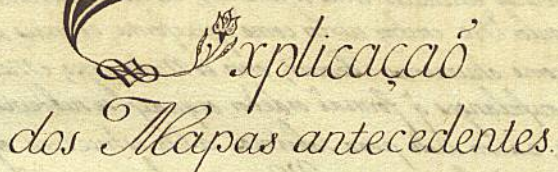 Explicaçaõ
dos Mapas antecedentes.